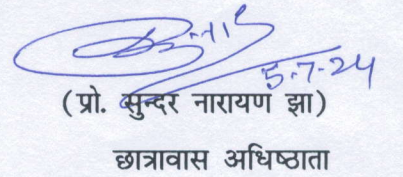 5-7-24
(प्रो. सुन्दर नारायण झा)
छात्रावास अधिष्ठाता